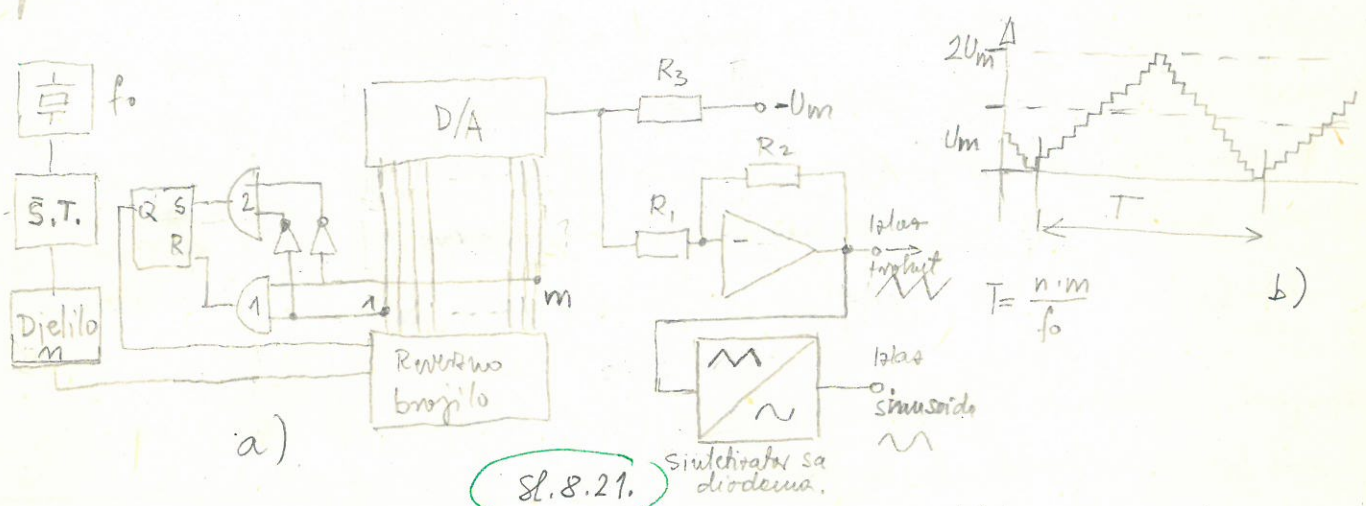 f₀
Š.T.
Djelilo
n
Q S
R
2
1
D/A
1
m
Reverzno
brojilo
a)
R₃
-Um
R₂
R₁
-
Izlaz
trokut
Izlaz
sinusoida
Sintetizator sa
diodama.
Sl. 8.21.
2Um
Um
T
T = n·m / f₀
b)